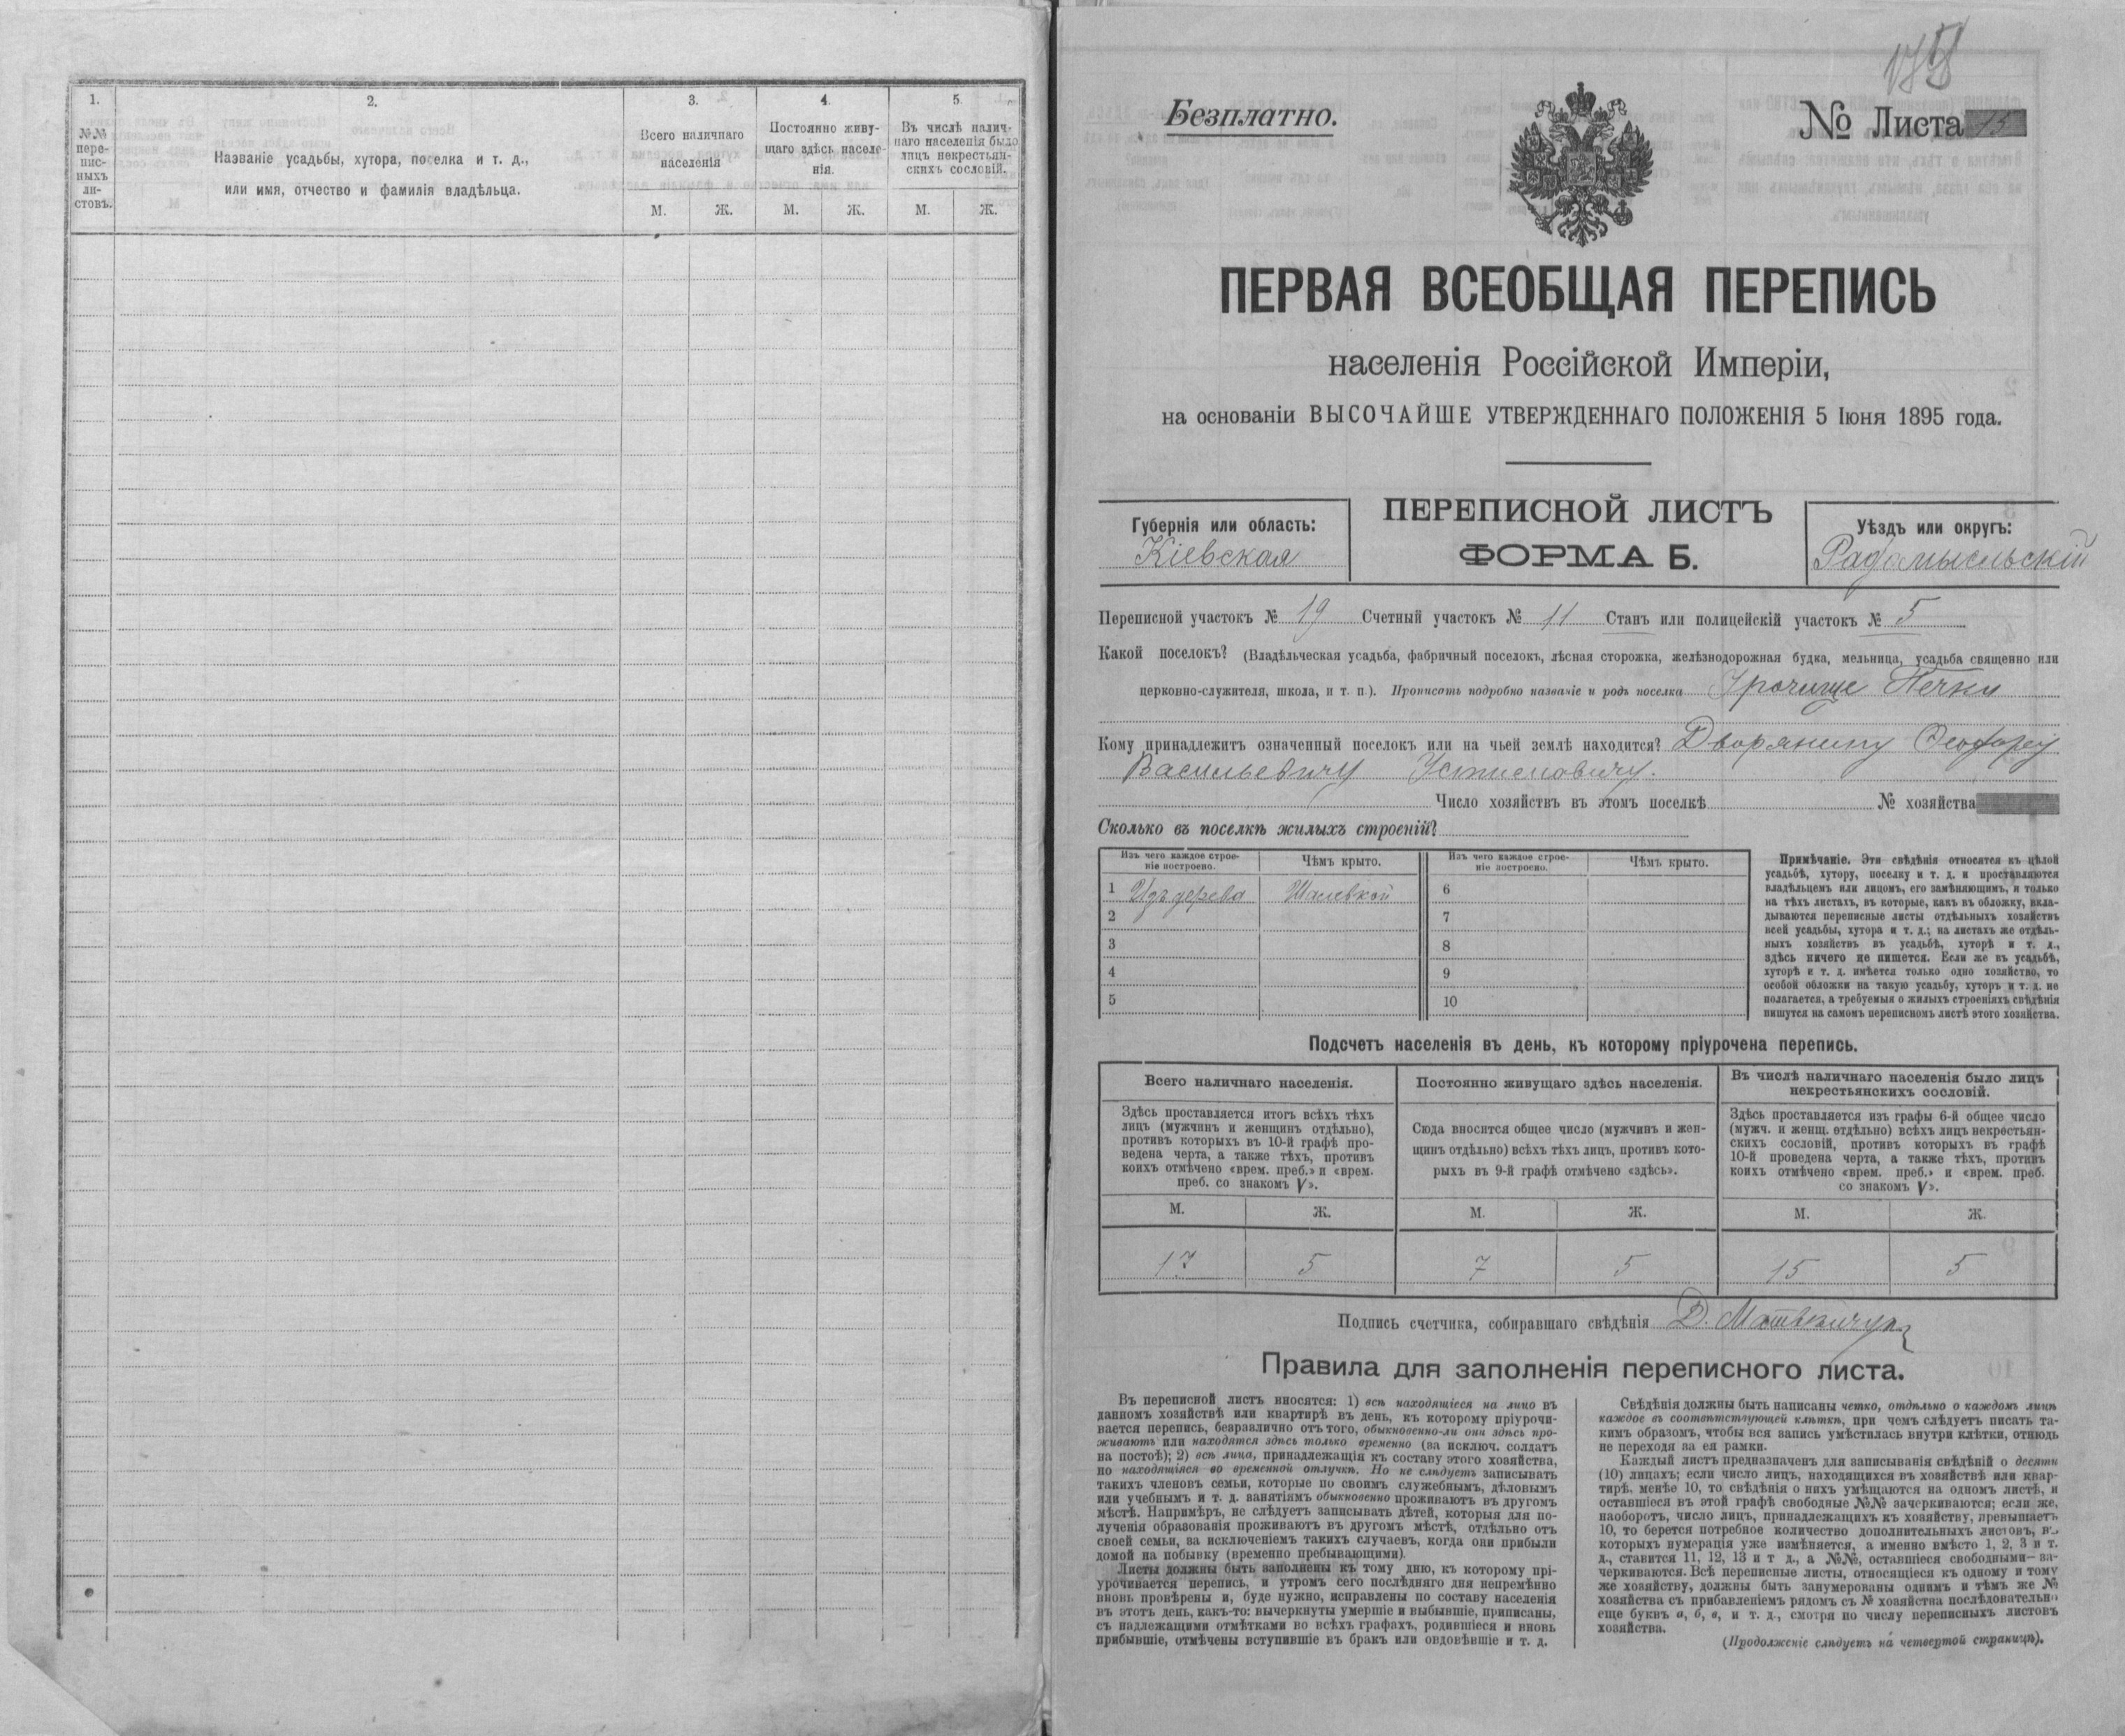 1.
№№
пере-
пис-
ныхъ
ли-
стовъ.
2.
Названіе усадьбы, хутора, поселка и т. д.,
или имя, отчество и фамилія владѣльца.
3.
Всего наличнаго
населенія
М. Ж.
4.
Постоянно живу-
щаго здѣсь населе-
нія.
М. Ж.
5.
Въ числѣ налич-
наго населенія было
лицъ некрестьян-
скихъ сословій.
М. Ж.
Безплатно.
№ Листа 15
ПЕРВАЯ ВСЕОБЩАЯ ПЕРЕПИСЬ
населенія Россійской Имперіи,
на основаніи ВЫСОЧАЙШЕ УТВЕРЖДЕННАГО ПОЛОЖЕНІЯ 5 Іюня 1895 года.
Губернія или область:
Кіевская
ПЕРЕПИСНОЙ ЛИСТЪ
ФОРМА Б.
Уѣздъ или округъ:
Радомысльскій
Переписной участокъ № 19 Счетный участокъ № 11 Станъ или полицейскій участокъ № 5
Какой поселокъ? (Владѣльческая усадьба, фабричный поселокъ, лѣсная сторожка, желѣзнодорожная будка, мельница, усадьба священно или
церковно-служителя, школа, и т. п.). Прописать подробно названіе и родъ поселка Урочище Печки
Кому принадлежитъ означенный поселокъ или на чьей землѣ находится? Дворянину
Васильевичу
Число хозяйствъ въ этомъ поселкѣ № хозяйства
Сколько въ поселкѣ жилыхъ строеній?
Изъ чего каждое строе-
ніе построено.
Чѣмъ крыто.
Изъ чего каждое строе-
ніе построено.
Чѣмъ крыто.
1 Изъ дерева Шалевкой 6
2 7
3 8
4 9
5 10
Примѣчаніе. Эти свѣдѣнія относятся къ цѣлой
усадьбѣ, хутору, поселку и т. д. и проставляются
владѣльцемъ или лицомъ, его замѣняющимъ, и только
на тѣхъ листахъ, въ которые, какъ въ обложку, вкла-
дываются переписные листы отдѣльныхъ хозяйствъ
всей усадьбы, хутора и т. д.; на листахъ же отдѣль-
ныхъ хозяйствъ въ усадьбѣ, хуторѣ и т. д.,
здѣсь ничего не пишется. Если же въ усадьбѣ,
хуторѣ и т. д. имѣется только одно хозяйство, то
особой обложки на такую усадьбу, хуторъ и т. д. не
полагается, а требуемыя о жилыхъ строеніяхъ свѣдѣнія
пишутся на самомъ переписномъ листѣ этого хозяйства.
Подсчетъ населенія въ день, къ которому пріурочена перепись.
Всего наличнаго населенія.
Здѣсь проставляется итогъ всѣхъ тѣхъ
лицъ (мужчинъ и женщинъ отдѣльно),
противъ которыхъ въ 10-й графѣ про-
ведена черта, а также тѣхъ, противъ
коихъ отмѣчено «врем. преб.» и «врем.
преб. со знакомъ V».
М. Ж.
17 5
Постоянно живущаго здѣсь населенія.
Сюда вносится общее число (мужчинъ и жен-
щинъ отдѣльно) всѣхъ тѣхъ лицъ, противъ кото-
рыхъ въ 9-й графѣ отмѣчено «здѣсь».
М. Ж.
7 5
Въ числѣ наличнаго населенія было лицъ
некрестьянскихъ сословій.
Здѣсь проставляется изъ графы 6-й общее число
(мужч. и женщ. отдѣльно) всѣхъ лицъ некрестьян-
скихъ сословій, противъ которыхъ въ графѣ
10-й проведена черта, а также тѣхъ, противъ
коихъ отмѣчено «врем. преб.» и «врем. преб.
со знакомъ V».
М. Ж.
15 5
Подпись счетчика, собиравшаго свѣдѣнія Д.
Правила для заполненія переписного листа.
Въ переписной листъ вносятся: 1) всѣ находящіеся на лицо въ
данномъ хозяйствѣ или квартирѣ въ день, къ которому пріурочи-
вается перепись, безразлично отъ того, обыкновенно-ли они здѣсь про-
живаютъ или находятся здѣсь только временно (за исключ. солдатъ
на постоѣ); 2) всѣ лица, принадлежащія къ составу этого хозяйства,
но находящіяся во временной отлучкѣ. Но не слѣдуетъ записывать
такихъ членовъ семьи, которые по своимъ служебнымъ, дѣловымъ
или учебнымъ и т. д. занятіямъ обыкновенно проживаютъ въ другомъ
мѣстѣ. Напримѣръ, не слѣдуетъ записывать дѣтей, которыя для по-
лученія образованія проживаютъ въ другомъ мѣстѣ, отдѣльно отъ
своей семьи, за исключеніемъ такихъ случаевъ, когда они прибыли
домой на побывку (временно пребывающими).
Листы должны быть заполнены къ тому дню, къ которому прі-
урочивается перепись, и утромъ сего послѣдняго дня непремѣнно
вновь провѣрены и, буде нужно, исправлены по составу населенія
въ этотъ день, какъ-то: вычеркнуты умершіе и выбывшіе, приписаны,
съ надлежащими отмѣтками во всѣхъ графахъ, родившіеся и вновь
прибывшіе, отмѣчены вступившіе въ бракъ или овдовѣвшіе и т. д.
Свѣдѣнія должны быть написаны четко, отдѣльно о каждомъ лицѣ
каждое въ соотвѣтствующей клѣткѣ, при чемъ слѣдуетъ писать та-
кимъ образомъ, чтобы вся запись умѣстилась внутри клѣтки, отнюдь
не переходя за ея рамки.
Каждый листъ предназначенъ для записыванія свѣдѣній о десяти
(10) лицахъ; если число лицъ, находящихся въ хозяйствѣ или квар-
тирѣ, менѣе 10, то свѣдѣнія о нихъ умѣщаются на одномъ листѣ, и
оставшіеся въ этой графѣ свободные №№ зачеркиваются; если же,
наоборотъ, число лицъ, принадлежащихъ къ хозяйству, превышаетъ
10, то берется потребное количество дополнительныхъ листовъ, въ
которыхъ нумерація уже измѣняется, а именно вмѣсто 1, 2, 3 и т.
д., ставится 11, 12, 13 и т д., а №№, оставшіеся свободными—за-
черкиваются. Всѣ переписные листы, относящіеся къ одному и тому
же хозяйству, должны быть занумерованы однимъ и тѣмъ же №
хозяйства съ прибавленіемъ рядомъ съ № хозяйства послѣдовательно
еще буквъ а, б, в, и т. д., смотря по числу переписныхъ листовъ
хозяйства.
(Продолженіе слѣдуетъ на четвертой страницѣ).